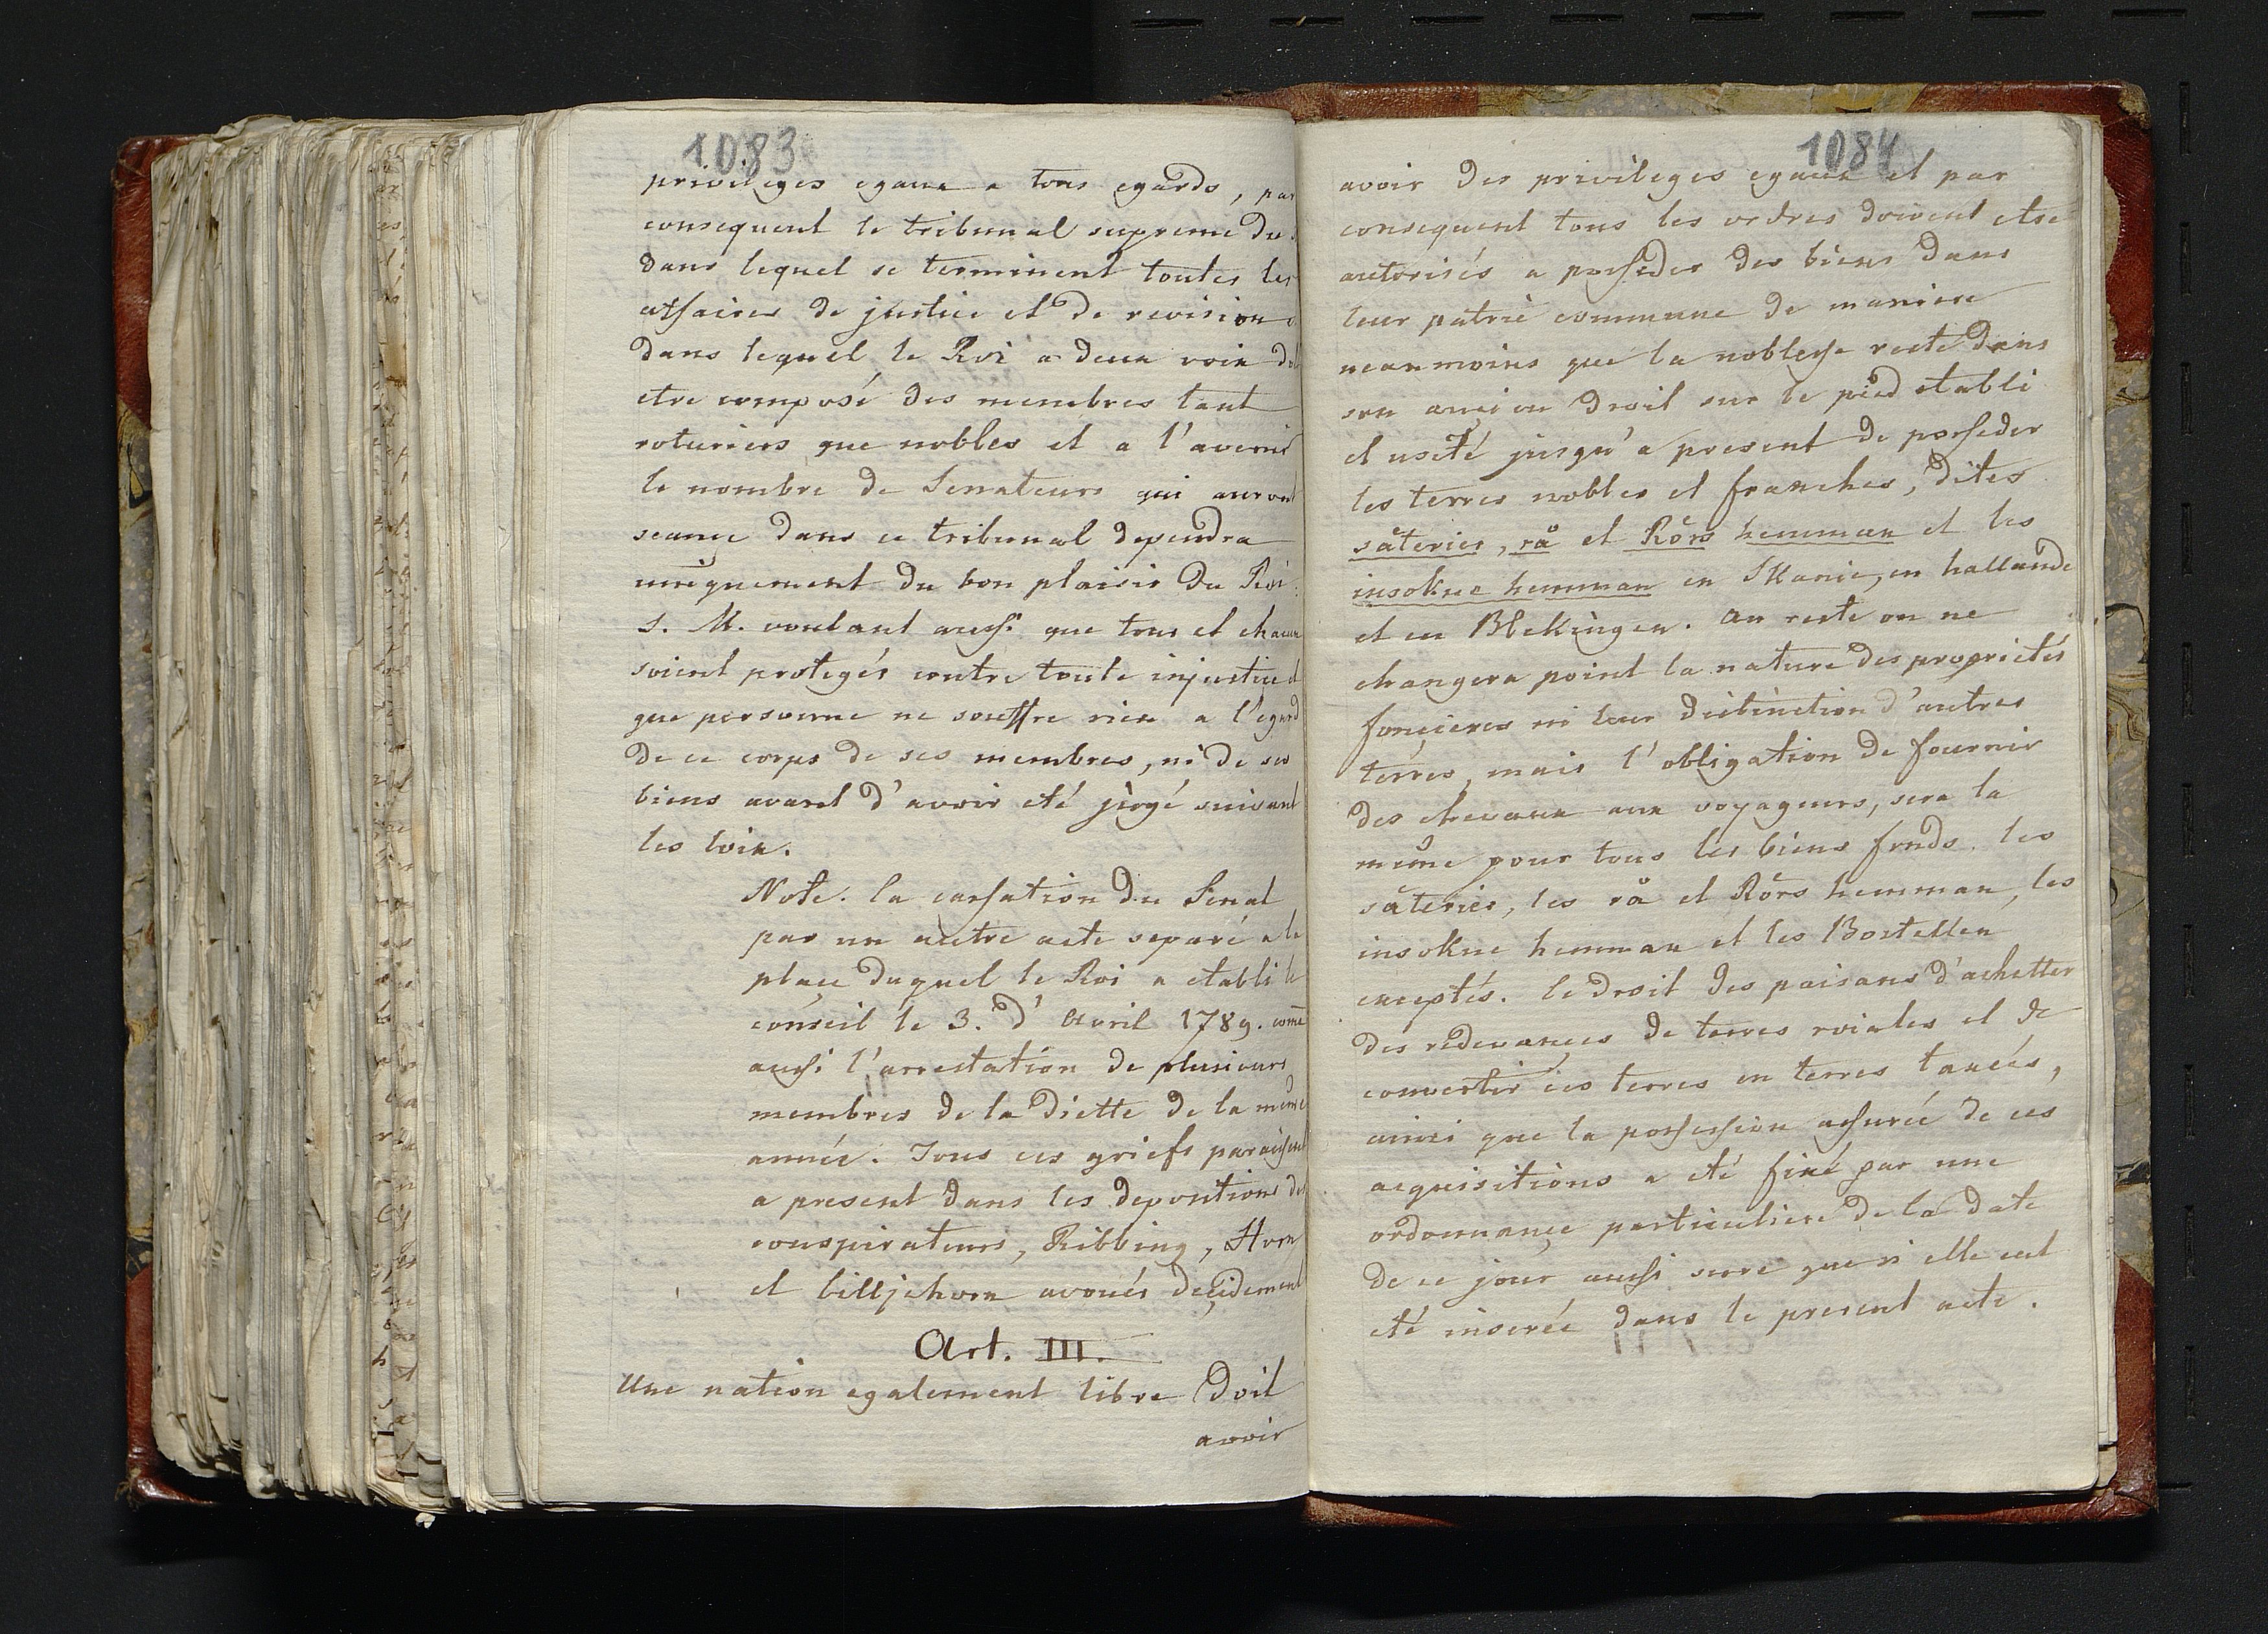 1083
privileges egaux a tous egards, par
consequent le tribunal supreme du
dans lequel se terminent toutes les
affaires de justice et de revision
dans lequel le Roi a deux voix
etre composé des membres tant
roturiers que nobles et a l'avenir
le nombre de Senateurs qui auront
seance dans ce tribunal dependra
uniquement du bon plaisir du Roi
S. M. voulant aussi que tous et chacun
soient protegés contre toute injustice et
que personne ne souffre rien a l'egard
de ce corps de ses membres, ni de ses
biens avant d'avoir eté jugé suivant
les loix.
Note. la cassation du Senat
par un autre acte separé a la
place duquel le Roi a etabli le
conseil le 3. d'Avril 1789. comē
aussi l'arrestation de plusieurs
membres de la Diette de la meme
année. Tous ces griefs paraissent
a present dans les depositions des
conspirateurs, Ribbing, Horn
et Lilljehorn avoués decidement
Art. III.
Une nation egalement libre doit
avoir
1084
avoir des privileges egaux et par
consequent tous les ordres doivent etre
autorisés a posseder des biens dans
leur patrie commune de maniere
neanmoins que la noblesse reste dans
son ancien droit sur le pied etabli
et usité jusqu'a present de posseder
les terres nobles et franches, dites
säterier, rå et Rörs hemman et les
insokne hemman en Skanie, en hallande
et en Blekingen. Au reste on ne
changera point la nature des proprietés
foncieres ni leur distinction d'autres
terres, mais l'obligation de fournir
des chevaux aux voyageurs, sera la
meme pour tous les biens fonds. les
säterier, les rå et Rörs hemman, les
insokne hemman et les Bostellen
exceptés. le droit des paisans d'achetter
des redevances de terres roiales et de
convertir ces terres en terres taxées,
ainsi que la possession assurée de ces
acquisitions a eté fixé par une
ordonnance particuliere de la date
de ce jour aussi sure que si elle eut
eté inserée dans le present acte.